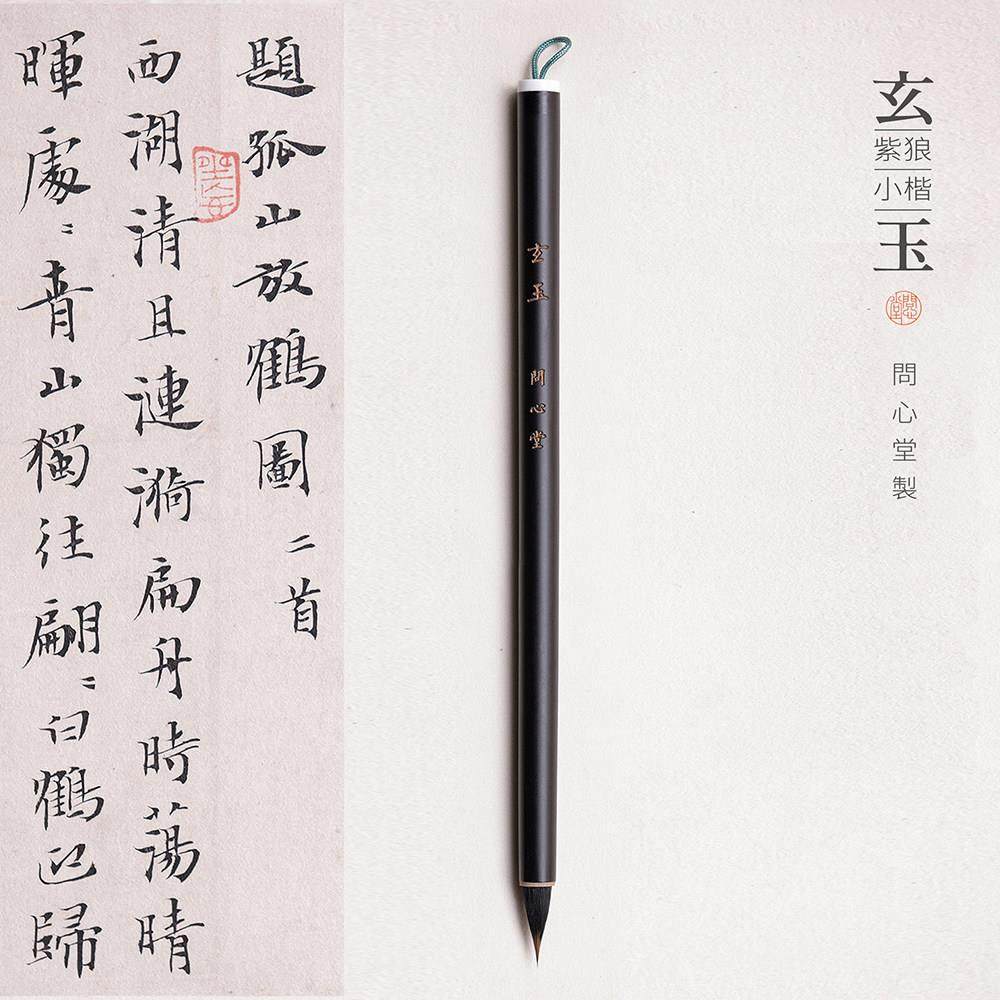 玄
紫狼
小楷
玉
問心堂
問心堂製
玄玉 問心堂
題孤山放鶴圖二首
西湖清且漣漪扁舟時蕩晴
暉處〻青山獨往翩〻白鶴迎歸